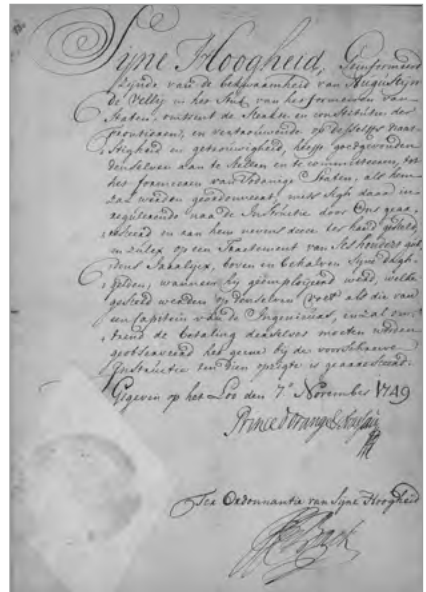 Syne Hoogheid, Geinformeerd
zynde van de bekwaamheid van Augustijn
de Velly in het Stuk van het formeeren van
Staten, omtrent de Sterkte en constitutie der
frontieren, en vertrouwende op desselfs naar-
stigheid en getrouwigheid, heeft goedgevonden
denselven aan te stellen en te committeeren, tot
het formeeren van sodanige Staten, als hem
zal werden geordonneert, mits sigh daar in
reguleerende naa de Instructie door Ons gear-
resteerd en aan hem nevens deese ter hand gesteld,
en zulx op een Tractement van Ses honderd gul-
dens Jaarlyx, boven en behalven Syne Dagh-
gelden, wanneer hy geëmployeerd werd, welke
gesteld werden op denselven voet als die van
een Capitein van de Ingenieurs, en zal om-
trend de betaling derselver moeten werden
geobserveerd het geene by de voorschreve
Instructie ten dien opzigte is gearresteerd.
Gegeven op het Loo den 7e November 1749
Prince d'Orange & Nassau
Ter Ordonnantie van Syne Hoogheid